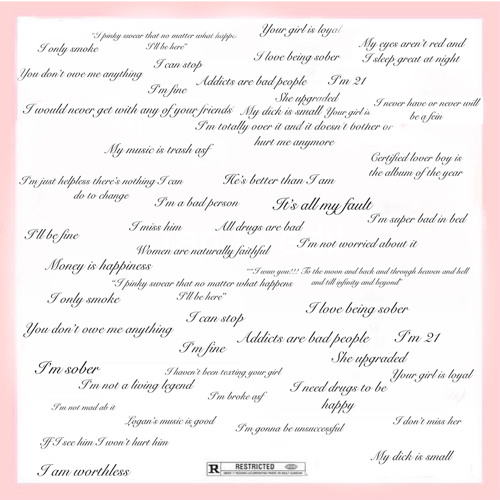 Your girl is loyal
"I pinky swear that no matter what happe
I'll be here"
I only smoke
My eyes aren't red and
I sleep great at night
I love being sober
I can stop
You don't owe me anything
Addicts are bad people
I'm 21
I'm fine
She upgraded
I never have or never will
be a fein
I would never get with any of your friends
My dick is small
Your girl is
I'm totally over it and it doesn't bother or
hurt me anymore
My music is trash asf
Certified lover boy is
the album of the year
I'm just helpless there's nothing I can
do to change
He's better than I am
I'm a bad person
It's all my fault
I'm super bad in bed
I miss him
All drugs are bad
I'll be fine
I'm not worried about it
Women are naturally faithful
Money is happiness
""I want you!!! To the moon and back and through heaven and hell
and till infinity and beyond"
"I pinky swear that no matter what happens
I'll be here"
I only smoke
I love being sober
I can stop
You don't owe me anything
Addicts are bad people
I'm 21
I'm fine
She upgraded
I'm sober
I haven't been texting your girl
Your girl is loyal
I'm not a living legend
I need drugs to be
happy
I'm broke asf
I'm not mad ab it
Logan's music is good
I don't miss her
I'm gonna be unsuccessful
If I see him I won't hurt him
My dick is small
I am worthless
R RESTRICTED